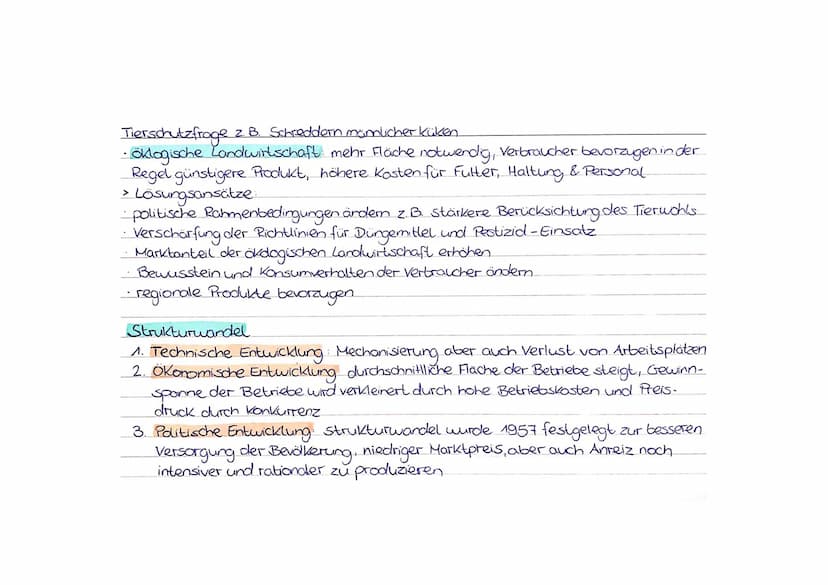 Tierschutzfrage z.B. Schreddern männlicher Küken
· öklogische Landwirtschaft: mehr Fläche notwendig, Verbraucher bevorzugen in der
Regel günstigere Produkt, höhere Kosten für Futter, Haltung & Personal
> Lösungsansätze:
· politische Rahmenbedingungen ändern z.B. stärkere Berücksichtung des Tierwohls
· Verschärfung der Richtlinien für Düngemittel und Pestizid-Einsatz
· Marktanteil der ökologischen Landwirtschaft erhöhen
· Bewusstein und Konsumverhalten der Verbraucher ändern
· regionale Produkte bevorzugen
Strukturwandel
1. Technische Entwicklung: Mechanisierung aber auch Verlust von Arbeitsplätzen
2. Ökonomische Entwicklung: durchschnittliche Fläche der Betriebe steigt, Gewinn-
spanne der Betriebe wird verkleinert durch hohe Betriebskosten und Preis-
druck durch Konkurrenz
3. Politische Entwicklung: Strukturwandel wurde 1957 festgelegt zur besseren
Versorgung der Bevölkerung, niedriger Marktpreis, aber auch Anreiz noch
intensiver und rationaler zu produzieren